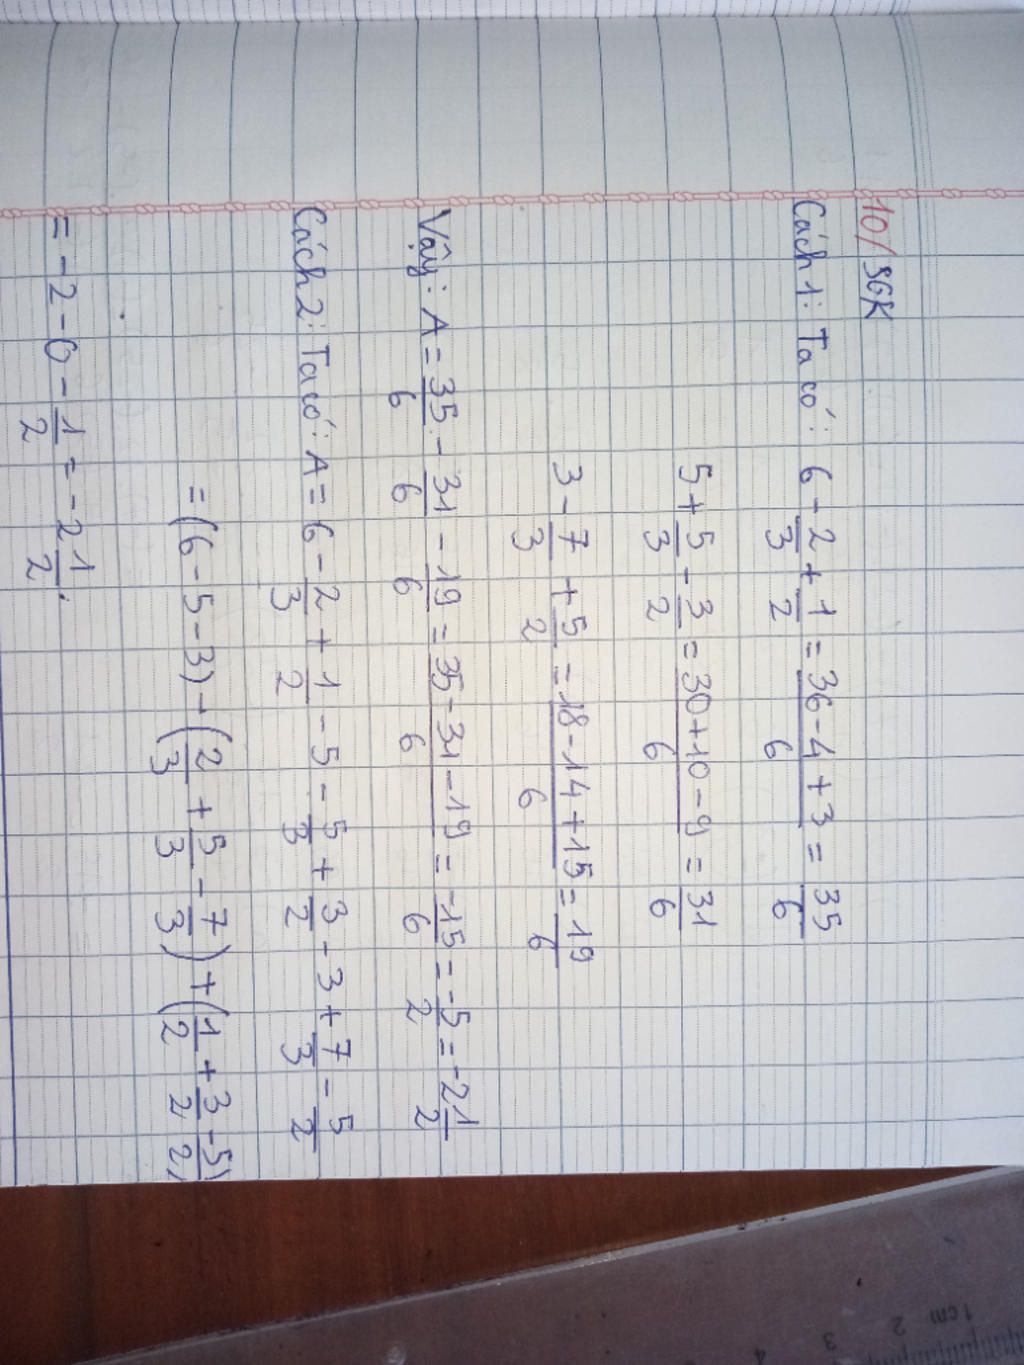 10/ SGK
Cách 1: Ta có: 6 - 2/3 + 1/2 = (36 - 4 + 3)/6 = 35/6
5 + 5/3 - 3/2 = (30 + 10 - 9)/6 = 31/6
3 - 7/3 + 5/2 = (18 - 14 + 15)/6 = 19/6
Vậy: A = 35/6 - 31/6 - 19/6 = (35 - 31 - 19)/6 = -15/6 = -5/2 = -2 1/2
Cách 2: Ta có: A = 6 - 2/3 + 1/2 - 5 - 5/3 + 3/2 - 3 + 7/3 - 5/2
= (6 - 5 - 3) - (2/3 + 5/3 - 7/3) + (1/2 + 3/2 - 5/2)
= -2 - 0 - 1/2 = -2 1/2.
1cm 2 3 4